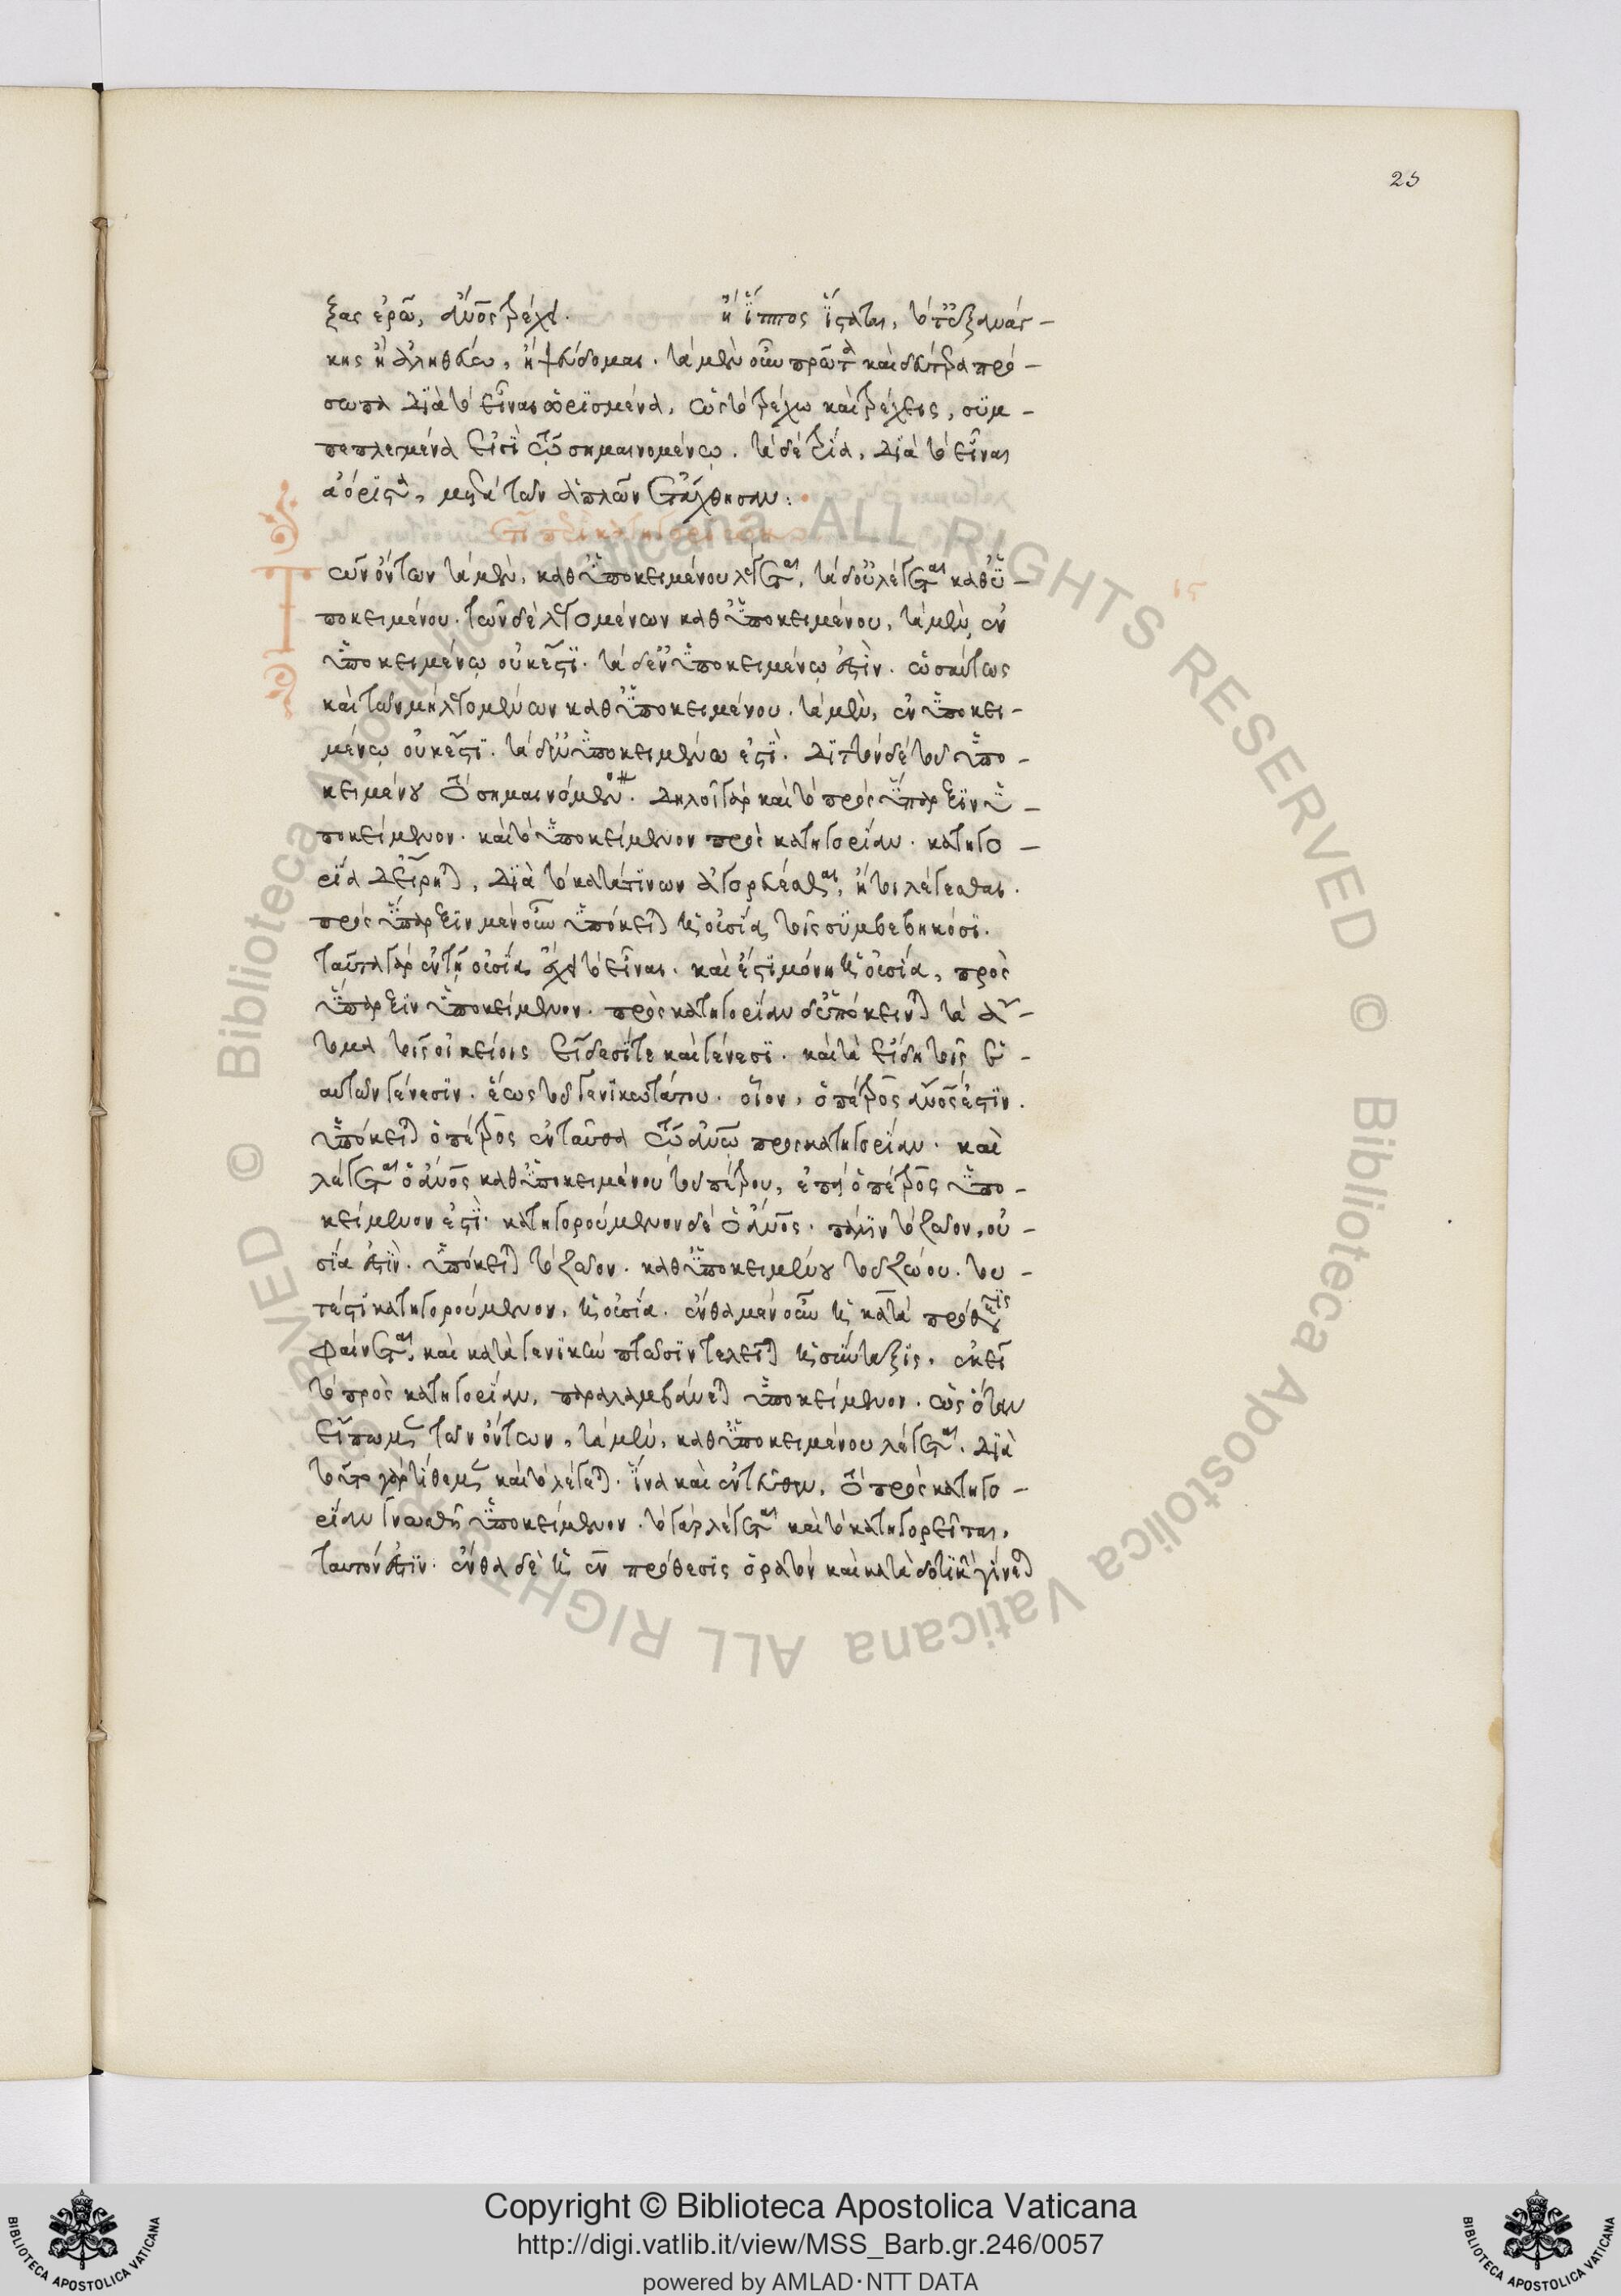 25
ξας ἐρῶ, ἄνος τρέχει. ἢ ἵππος ἵσταται, τότε ἐξ ἀνάγ-
κης ἢ ἀληθεύω, ἢ ψεύδομαι. τὰ μὲν οὖν πρῶτα καὶ δεύτερα πρό-
σωπα διὰ τὸ εἶναι ὡρισμένα, ὡς τὸ τρέχω καὶ τρέχεις, συμ-
πεπλεγμένα εἰσὶ τῷ σημαινομένῳ. τὰ δὲ τρία, διὰ τὸ εἶναι
ἀόριστα, μετὰ τῶν ἁπλῶν ἐτάχθησαν:
ἔτι περὶ κατηγοριῶν
ιε
Τῶν ὄντων τὰ μὲν, καθ' ὑποκειμένου λέγεται, τὰ δ' οὐ λέγεται καθ' ὑ-
ποκειμένου. τῶν δὲ λεγομένων καθ' ὑποκειμένου, τὰ μὲν ἐν
ὑποκειμένῳ οὐκ ἔστι. τὰ δ' ἐν ὑποκειμένῳ ἐστίν. ὡσαύτως
καὶ τῶν μὴ λεγομένων καθ' ὑποκειμένου. τὰ μὲν, ἐν ὑποκει-
μένῳ οὐκ ἔστι. τὰ δ' ἐν ὑποκειμένῳ ἐστί. διττὸν δὲ τοῦ ὑπο-
κειμένου τὸ σημαινόμενον. δηλοῖ γὰρ καὶ τὸ πρὸς ὕπαρξιν ὑ-
ποκείμενον. καὶ τὸ ὑποκείμενον πρὸς κατηγορίαν. κατηγο-
ρία δ' εἴρηται, διὰ τὸ κατά τινων ἀγορεύεσθαι, ἤτοι λέγεσθαι.
πρὸς ὕπαρξιν μὲν οὖν ὑπόκειται ἡ οὐσία, τοῖς συμβεβηκόσι.
ταῦτα γὰρ ἐν τῇ οὐσίᾳ ἔχει τὸ εἶναι. καὶ ἔστι μόνη ἡ οὐσία, πρὸς
ὕπαρξιν ὑποκείμενον. πρὸς κατηγορίαν δ' ὑπόκεινται τὰ ἄ-
τομα τοῖς οἰκείοις εἴδεσί τε καὶ γένεσι. καὶ τὰ εἴδη τοῖς ἑ-
αυτῶν γένεσιν. ἕως τοῦ γενικωτάτου. οἷον, ὁ πέτρος ἄνος ἐστίν.
ὑπόκειται ὁ πέτρος ἐνταῦθα τῷ ἀνῳ πρὸς κατηγορίαν. καὶ
λέγεται ὁ ἄνος καθ' ὑποκειμένου τοῦ πέτρου, ἐπεὶ ὁ πέτρος ὑπο-
κείμενον ἐστί. κατηγορούμενον δὲ ὁ ἄνος. πάλιν τὸ ζῶον, οὐ-
σία ἐστίν. ὑπόκειται τὸ ζῶον. καθ' ὑποκειμένου τοῦ ζώου. του-
τέστι κατηγορούμενον, ἡ οὐσία. ἔνθα μὲν οὖν ἡ κατὰ πρόθεσις
φαίνεται, καὶ κατὰ γενικὴν πτῶσιν τελεῖται ἡ σύνταξις. ἐκεῖ
τὸ πρὸς κατηγορίαν, παραλαμβάνεται ὑποκείμενον. ὡς ὅταν
εἴπωμεν τῶν ὄντων, τὰ μὲν, καθ' ὑποκειμένου λέγεται. διὰ
τοῦτο γὰρ τίθεμεν καὶ τὸ λέγεται. ἵνα καὶ ἐντεῦθεν, τὸ πρὸς κατηγο-
ρίαν γνωσθῇ ὑποκείμενον. τὸ γὰρ λέγεται καὶ τὸ κατηγορεῖται,
ταυτόν ἐστιν. ἔνθα δὲ ἡ ἐν πρόθεσις ὁρατὸν καὶ κατὰ δοτικὴν γίνεται
© Biblioteca Apostolica Vaticana ALL RIGHTS RESERVED © Biblioteca Apostolica Vaticana ALL RIGHTS RESERVED
Copyright © Biblioteca Apostolica Vaticana
http://digi.vatlib.it/view/MSS_Barb.gr.246/0057
powered by AMLAD·NTT DATA
BIBLIOTECA APOSTOLICA VATICANA
BIBLIOTECA APOSTOLICA VATICANA